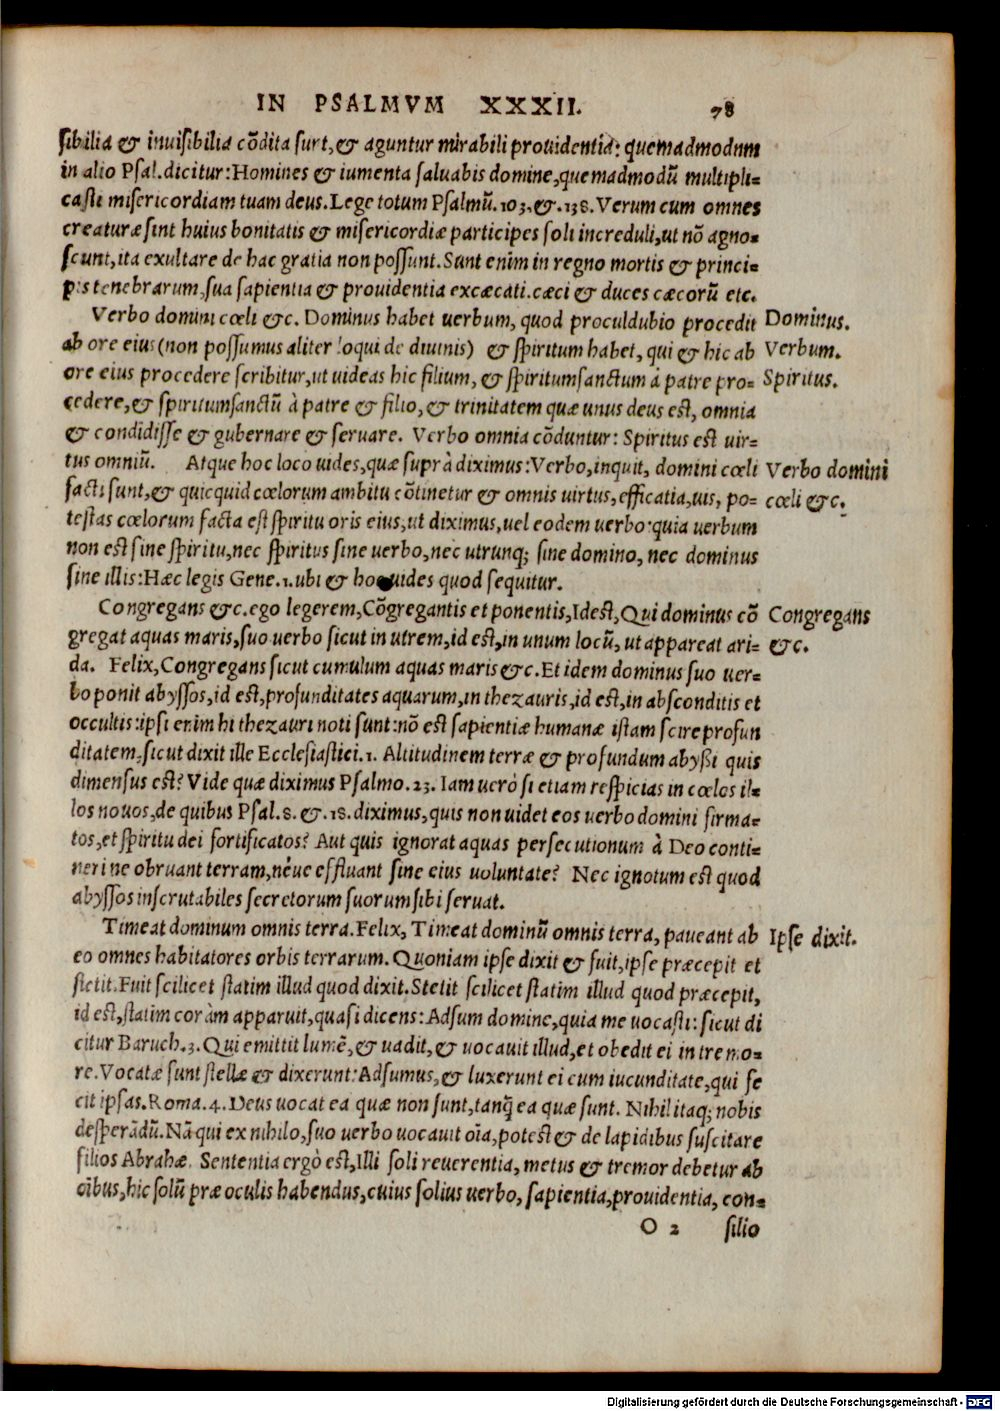 IN PSALMVM XXXII. 78
sibilia & inuisibilia cōdita surt, & aguntur mirabili prouidentia: quemadmodum
in alio Psal. dicitur: Homines & iumenta saluabis domine, quemadmodū multipli=
casti misericordiam tuam deus. Lege totum Psalmū. 103. &. 138. Verum cum omnes
creaturæ sint huius bonitatis & misericordiæ participes soli increduli, ut nō agno=
scunt, ita exultare de hac gratia non possunt. Sunt enim in regno mortis & princi=
pis tenebrarum, sua sapientia & prouidentia excæcati. cæci & duces cæcorū etc.
Verbo domini cœli &c. Dominus habet uerbum, quod proculdubio procedit Dominus.
ab ore eius (non possumus aliter loqui de diuinis) & spiritum habet, qui & hic ab Verbum.
ore eius procedere scribitur, ut uideas hic filium, & spiritumsanctum à patre pro= Spiritus.
cedere, & spiritumsanctū à patre & filio, & trinitatem quæ unus deus est, omnia
& condidisse & gubernare & seruare. Verbo omnia cōduntur: Spiritus est uir=
tus omniū. Atque hoc loco uides, quæ suprà diximus: Verbo, inquit, domini cœli Verbo domini
facti sunt, & quicquid cœlorum ambitu cōtinetur & omnis uirtus, efficatia, uis, po= cœli &c.
testas cœlorum facta est spiritu oris eius, ut diximus, uel eodem uerbo: quia uerbum
non est sine spiritu, nec spiritus sine uerbo, nec utrunq; sine domino, nec dominus
sine illis: Hæc legis Gene. 1. ubi & hoc uides quod sequitur.
Congregans &c. ego legerem, Cōgregantis et ponentis, Idest, Qui dominus cō Congregans
gregat aquas maris, suo uerbo sicut in utrem, id est, in unum locū, ut appareat ari= &c.
da. Felix, Congregans sicut cumulum aquas maris &c. Et idem dominus suo uer=
bo ponit abyssos, id est, profunditates aquarum, in thezauris, id est, in absconditis et
occultis: ipsi enim hi thezauri noti sunt: nō est sapientiæ humanæ istam scire profun
ditatem, sicut dixit ille Ecclesiastici. 1. Altitudinem terræ & profundum abyßi quis
dimensus est? Vide quæ diximus Psalmo. 23. Iam uerò si etiam respicias in cœlos il=
los nouos, de quibus Psal. 8. &. 18. diximus, quis non uidet eos uerbo domini firma=
tos, et spiritu dei fortificatos? Aut quis ignorat aquas persecutionum à Deo conti=
neri ne obruant terram, néue effluant sine eius uoluntate? Nec ignotum est quod
abyssos inscrutabiles secretorum suorum sibi seruat.
Timeat dominum omnis terra. Felix, Timeat dominū omnis terra, paueant ab Ipse dixit.
eo omnes habitatores orbis terrarum. Quoniam ipse dixit & fuit, ipse præcepit et
stetit. Fuit scilicet statim illud quod dixit. Stetit scilicet statim illud quod præcepit,
id est, statim coràm apparuit, quasi dicens: Adsum domine, quia me uocasti: sicut di
citur Baruch. 3. Qui emittit lumē, & uadit, & uocauit illud, et obedit ei in tremo=
re. Vocatæ sunt stellæ & dixerunt: Adsumus, & luxerunt ei cum iucunditate, qui fe
cit ipsas. Roma. 4. Deus uocat ea quæ non sunt, tanq̄ ea quæ sunt. Nihil itaq; nobis
desperādū. Nā qui ex nihilo, suo uerbo uocauit oīa, potest & de lapidibus suscitare
filios Abrahæ. Sententia ergò est, Illi soli reuerentia, metus & tremor debetur ab
oībus, hic solū præ oculis habendus, cuius solius uerbo, sapientia, prouidentia, con=
O 2 silio
Digitalisierung gefördert durch die Deutsche Forschungsgemeinschaft - DFG